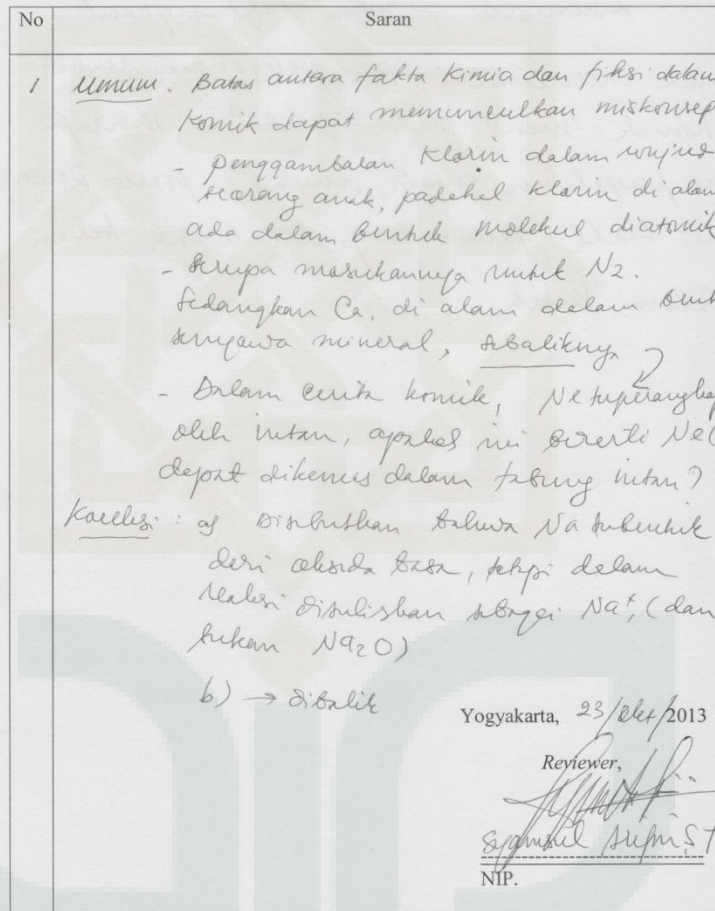 No Saran
1 Umum. Batas antara fakta kimia dan fiksi dalam
komik dapat memunculkan miskonsep
- penggambaran Klorin dalam wujud
seorang anak, padahal klorin di alam
ada dalam bentuk molekul diatomik
- serupa masukannya untuk N2.
Sedangkan Ca, di alam dalam bent
senyawa mineral, sebaliknya
- Dalam cerita komik, Ne terperangkap
oleh intan, apakah ini berarti Ne(
dapat dikemas dalam tabung intan?
Koreksi : a) Disebutkan bahwa Na terbentuk
dari oksida basa, tetapi dalam
reaksi dituliskan sebagai Na⁺, (dan
bukan Na2O)
b) → dibalik
Yogyakarta, 23/Okt/2013
Reviewer,
NIP.